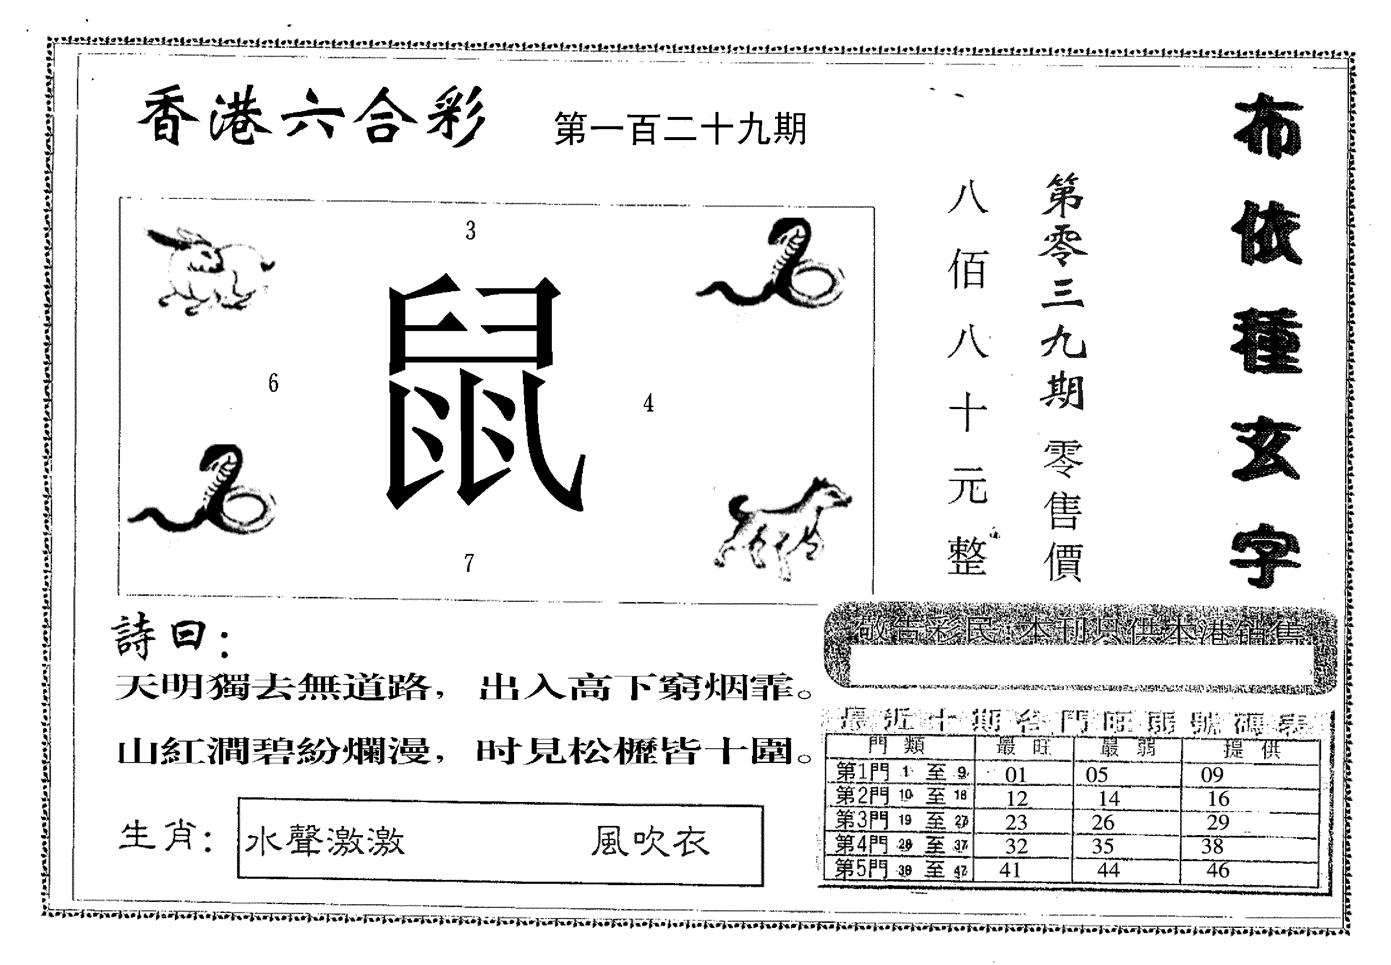 香港六合彩
第一百二十九期
布依種玄字
第零三九期零售價
八佰八十元整
3
鼠
6
4
7
詩曰：
天明獨去無道路，出入高下窮烟霏。
山紅澗碧紛爛漫，时見松櫪皆十圍。
生肖：
水聲激激 風吹衣
敬告彩民：本刊只供本港销售
最近十期各門旺弱號碼表
門類 最旺 最弱 提供
第1門 1 至 9 01 05 09
第2門 10 至 18 12 14 16
第3門 19 至 27 23 26 29
第4門 28 至 37 32 35 38
第5門 38 至 47 41 44 46